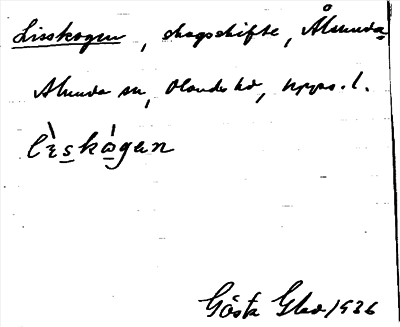 Lisskogen, skogsskifte, Ålsunda
Alunda sn, Olands hd, Upps. l.
lɪ̀skɷ̀gen
Gösta Gled 1936